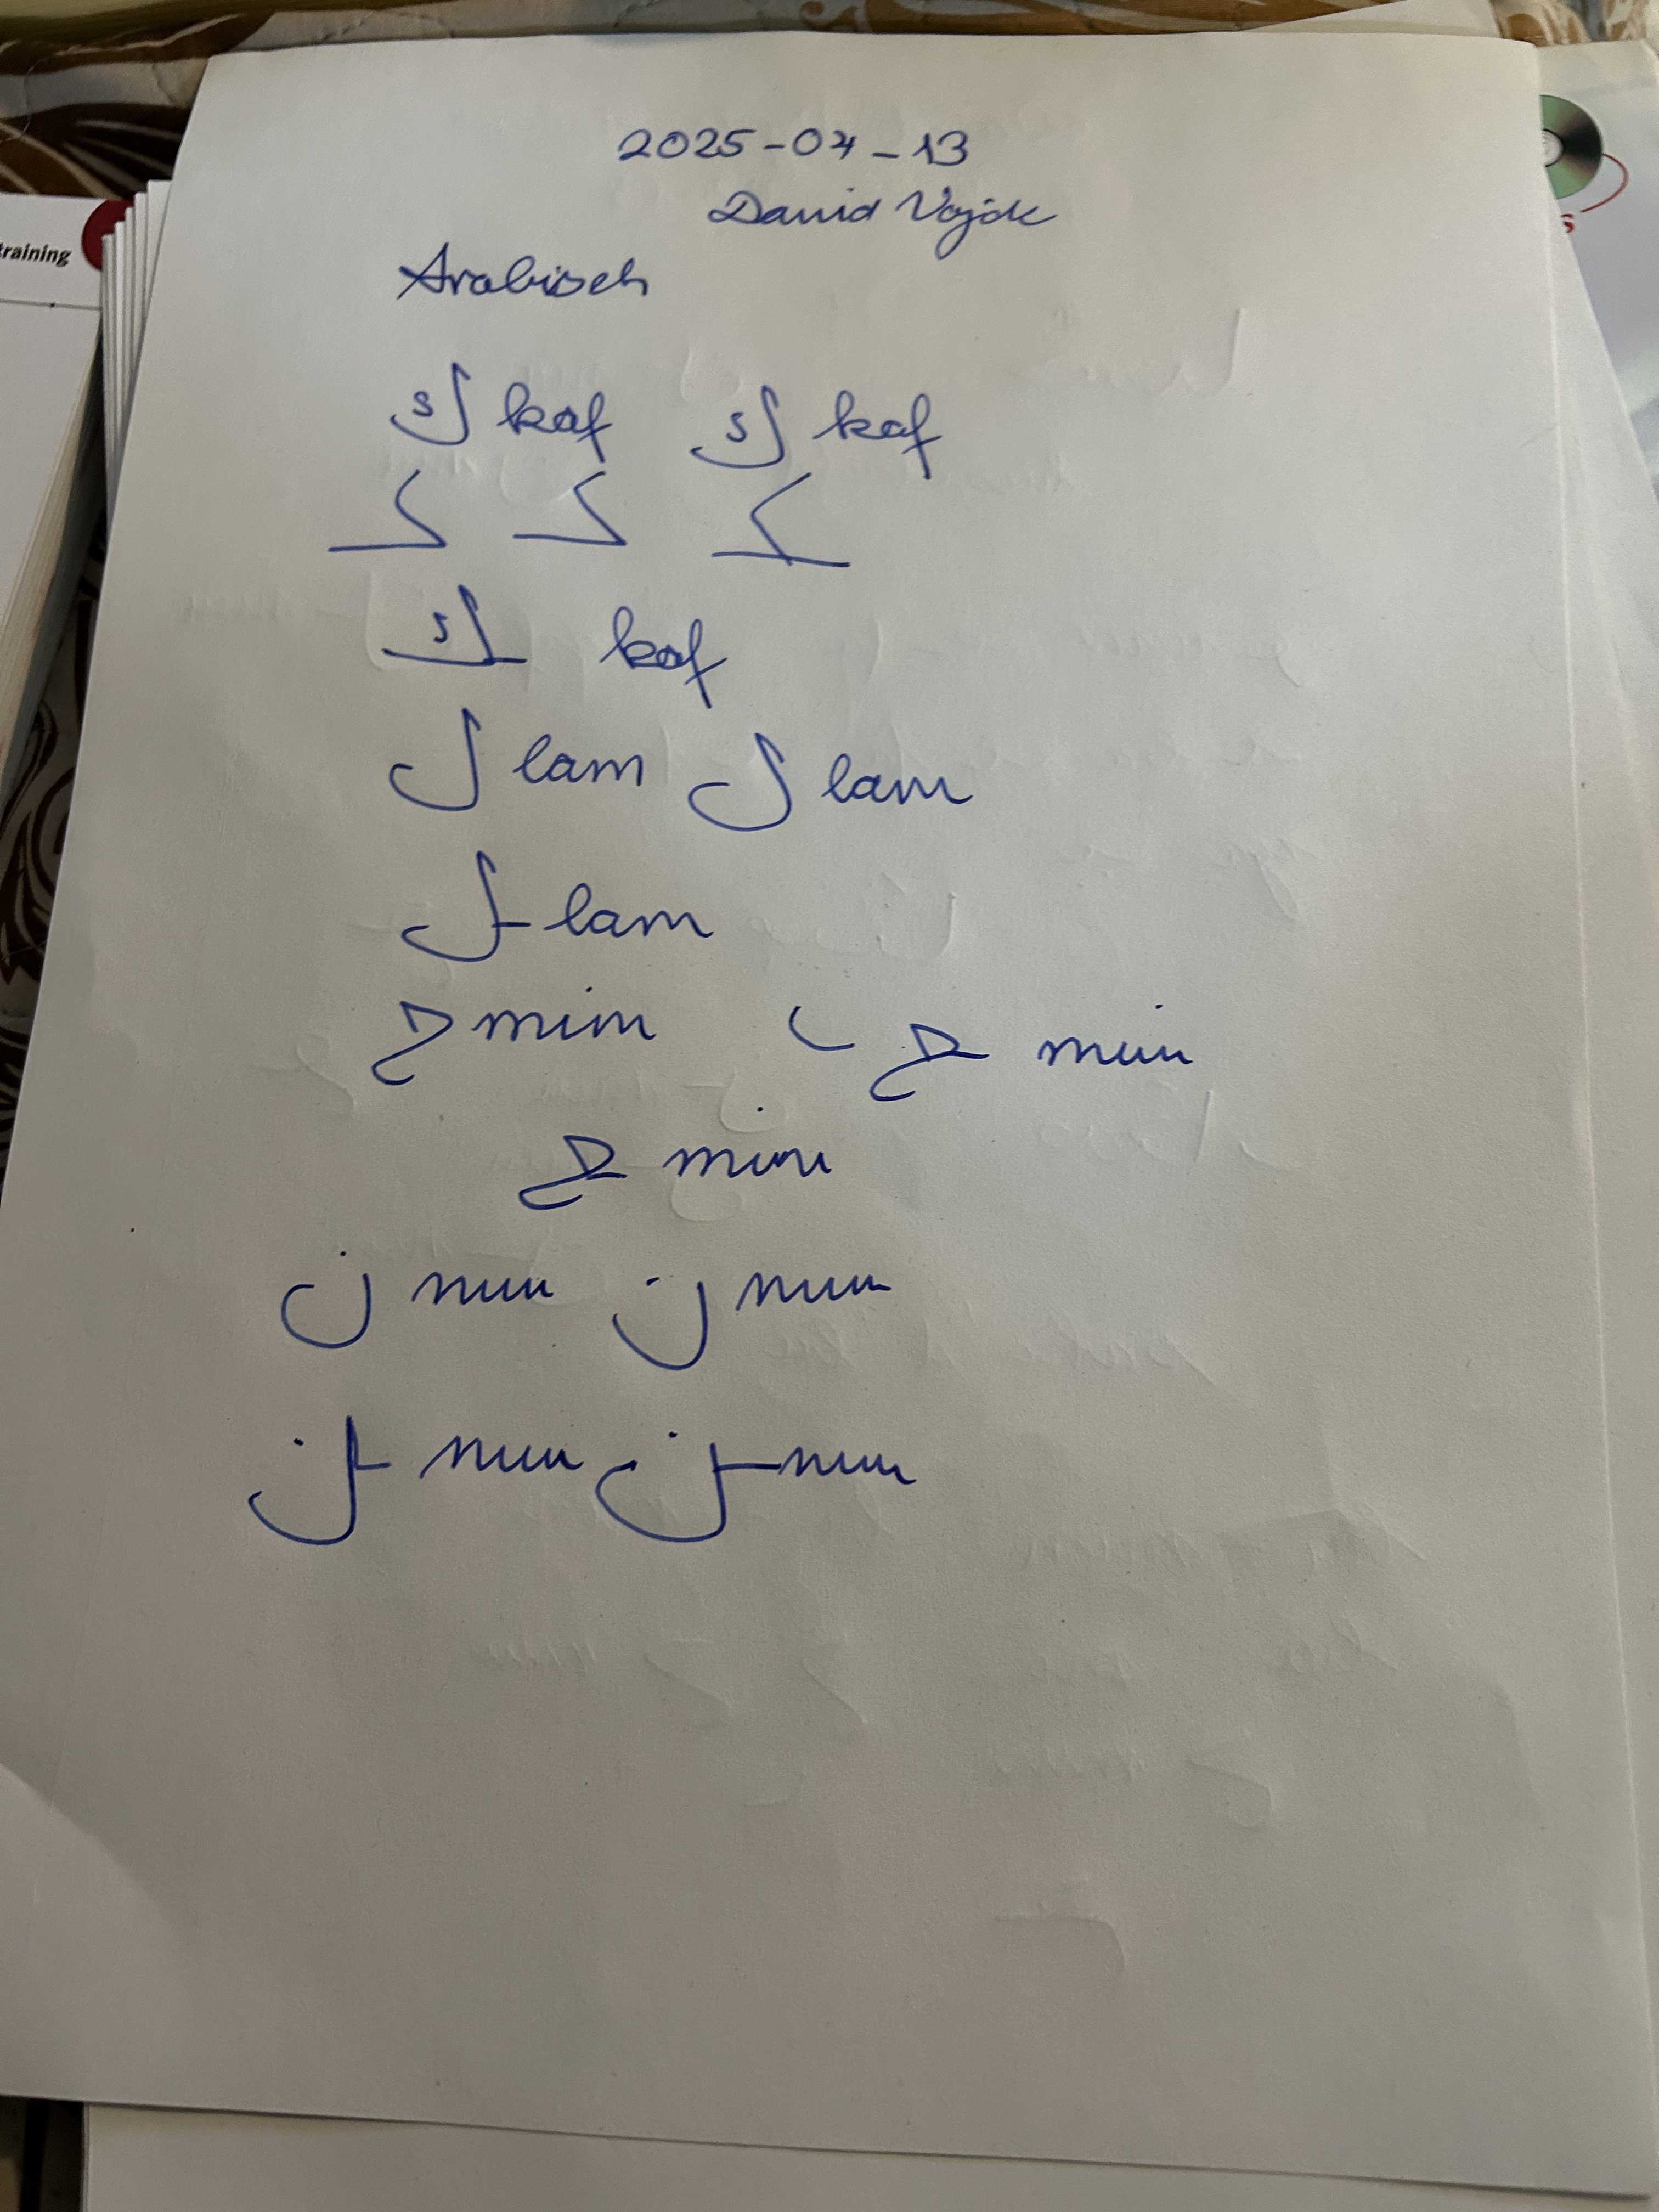 2025-04-13
David Vojók
Arabisch
ك kaf ك kaf
ک ک ک
ـك kaf
ل lam ل lam
ـل lam
م mim ـم mim
ـم mim
ن nun ن nun
ـن nun ـن nun
training
s